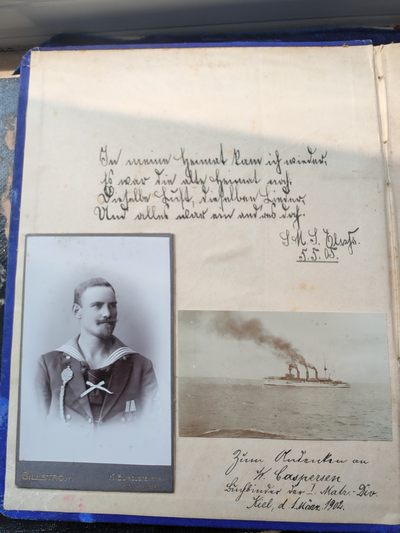 In meine Heimat kam ich wieder,
Es war die alte Heimat noch.
Dieselbe Luft, dieselben Lieder,
Und alles war ein andres doch.
S. M. S. Elsaß.
5.5.05.
Zum Andenken an
W. Caspersen
Buchbinder der I. Matr.-Div.
Kiel, d. 1. März 1902.